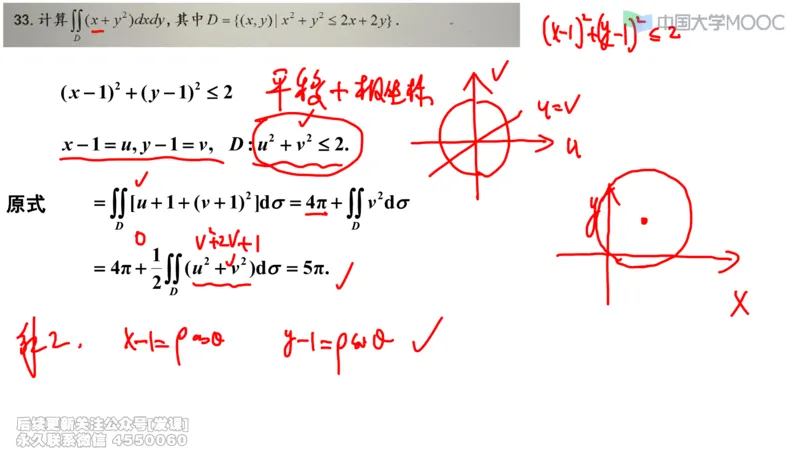 33. 计算∬_D (x + y²)dxdy, 其中 D = {(x, y) | x² + y² ≤ 2x + 2y}.
中国大学MOOC
(x-1)²+(y-1)² ≤ 2
(x − 1)² + (y − 1)² ≤ 2
平移+极坐标
x − 1 = u, y − 1 = v, D: u² + v² ≤ 2.
v
u=v
u
原式 = ∬_D [u + 1 + (v + 1)²]dσ = 4π + ∬_D v²dσ
0
v²+2v+1
= 4π + 1/2 ∬_D (u² + v²)dσ = 5π.
y
x
法2. x-1=ρcosθ y-1=ρsinθ
后续更新关注公众号[发课]
永久联系微信 4550060